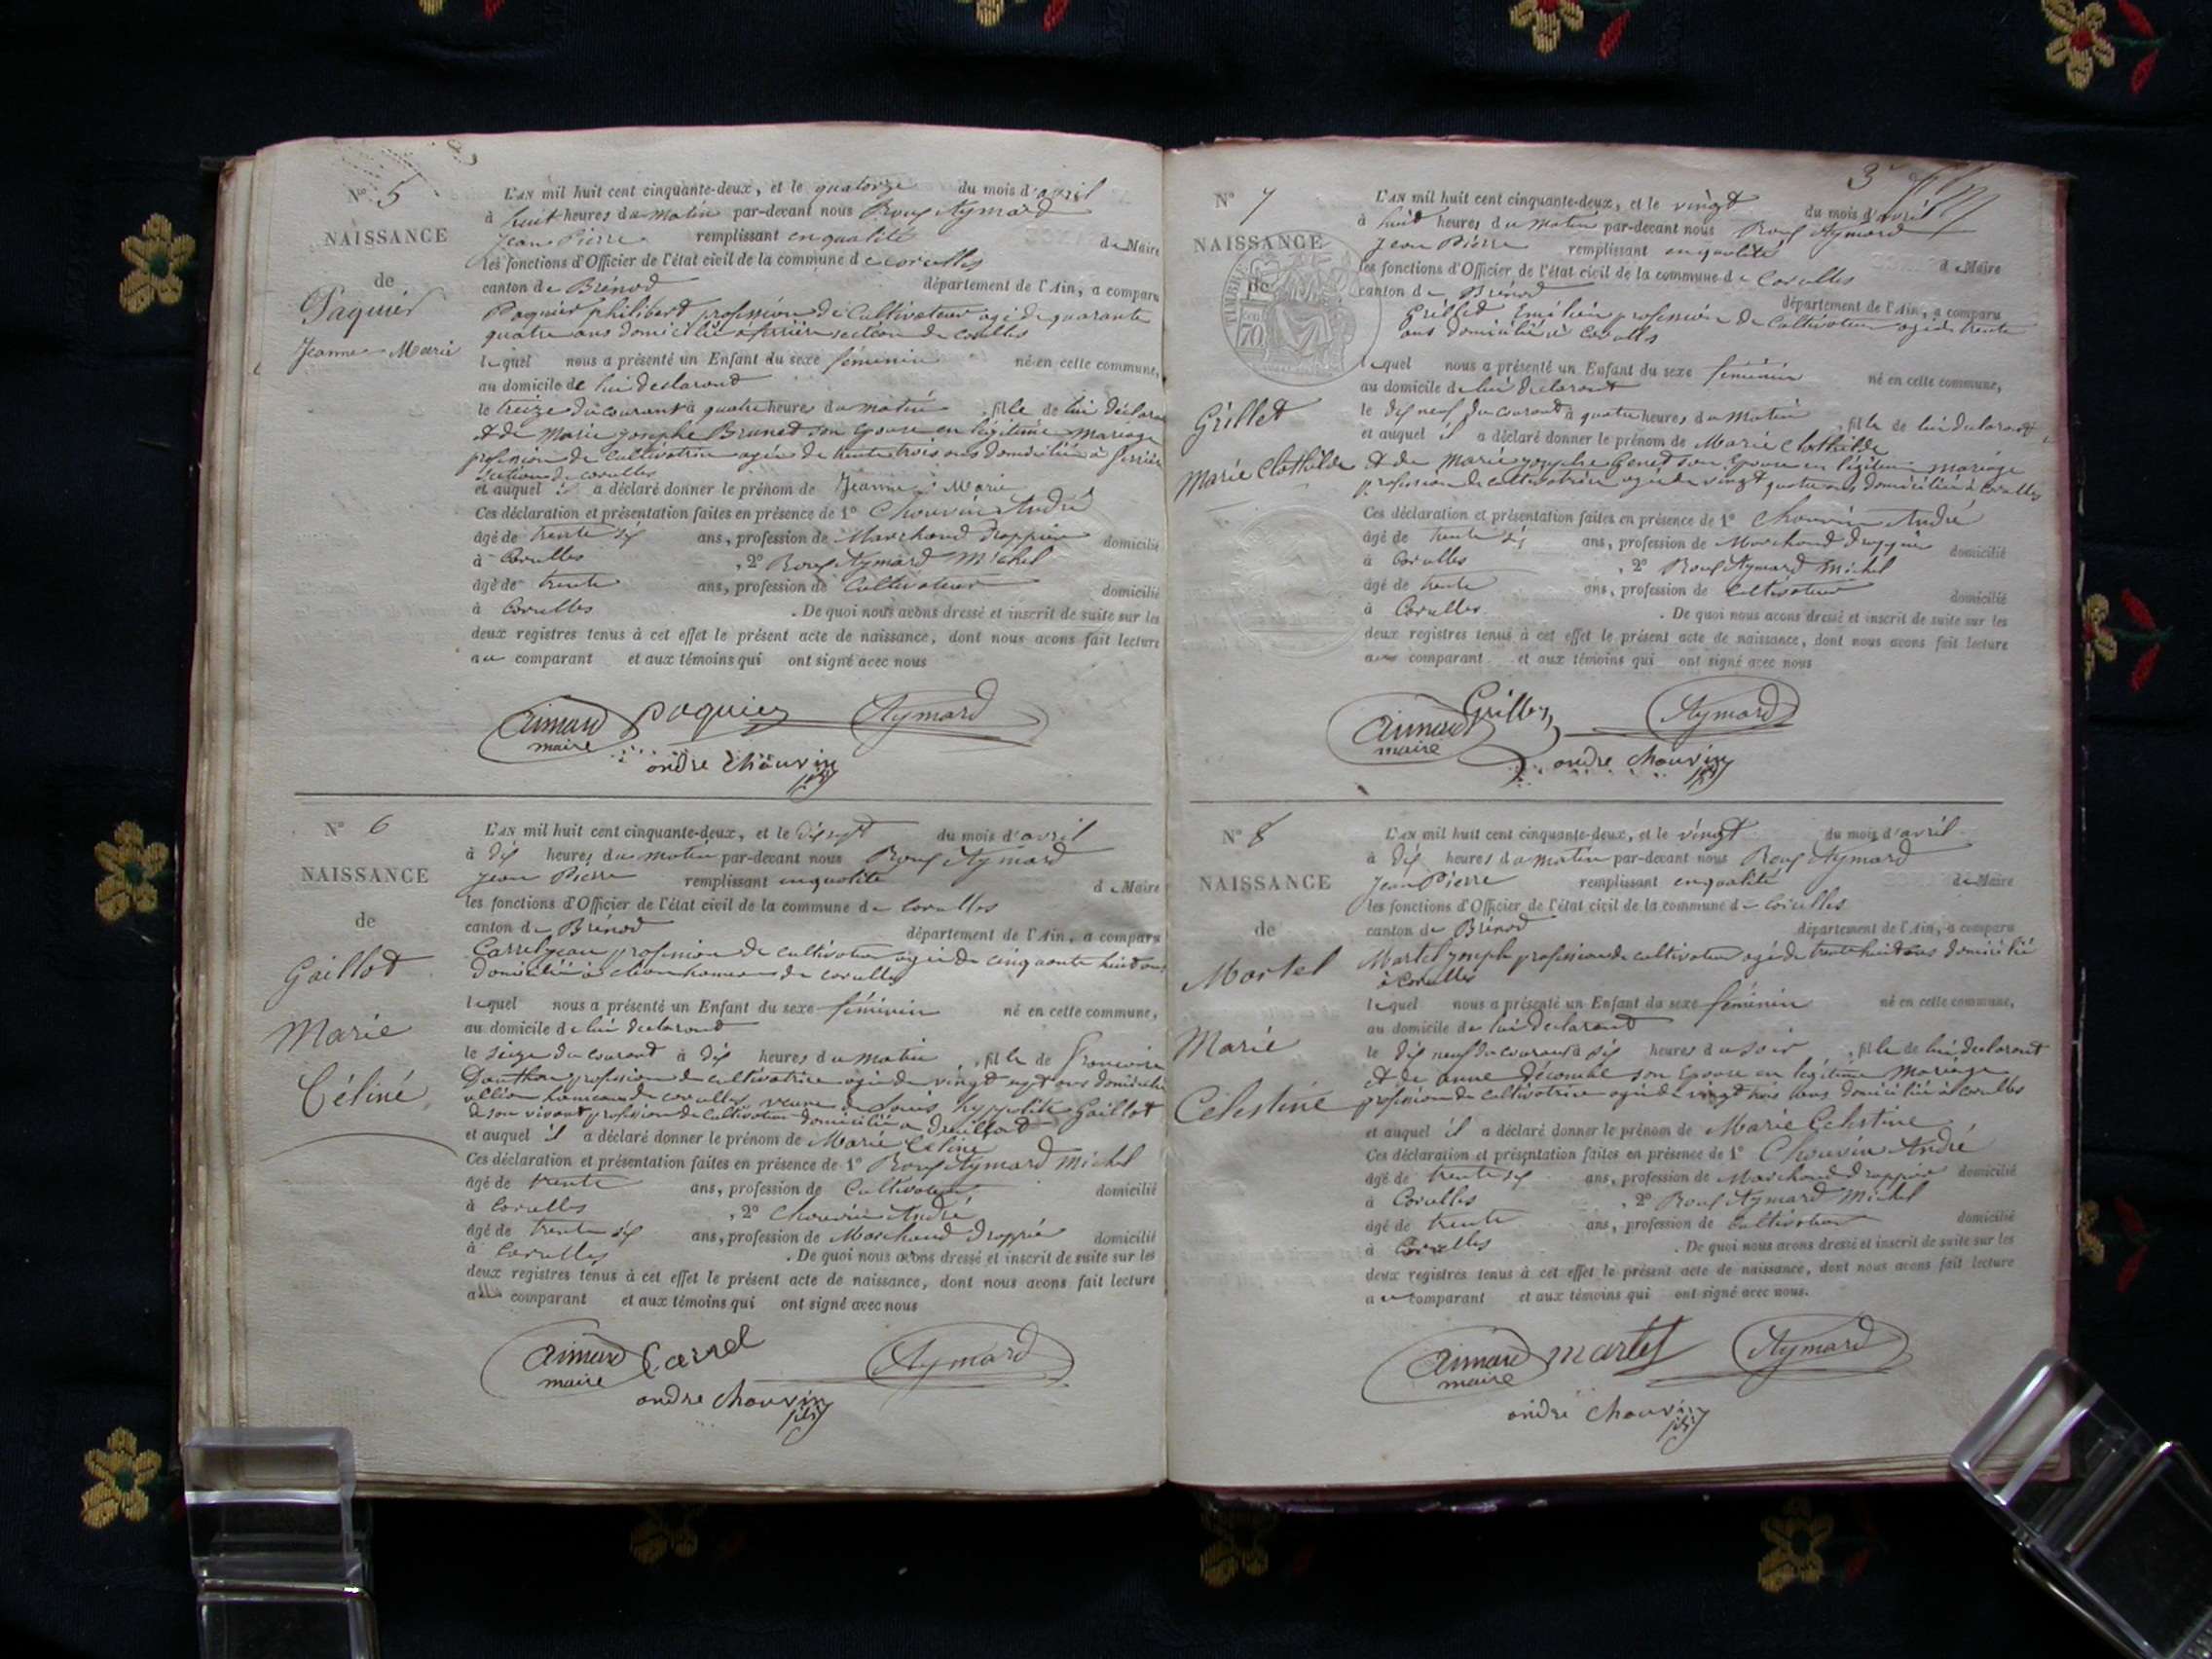 N° 5
NAISSANCE
de
Paquier
Jeanne Marie
L'AN mil huit cent cinquante-deux, et le quatorze du mois d'avril
à huit heures du matin par-devant nous Roux Aymard
Jean Pierre remplissant en qualité de Maire
les fonctions d'Officier de l'état civil de la commune de corcelles
canton de Brénod département de l'Ain, a comparu
Paquier philibert profession de Cultivateur agé de quarante
quatre ans domicilié à ferrière section de corcelles
lequel nous a présenté un Enfant du sexe féminin né en cette commune,
au domicile de lui déclarant
le treize du courant à quatre heures du matin, fille de lui déclarant
et de Marie josephe Brunet son épouse en légitime mariage
profession de cultivatrice agée de trente trois ans domiciliée à ferrière
section de corcelles
et auquel il a déclaré donner le prénom de Jeanne Marie
Ces déclaration et présentation faites en présence de 1° Chouvin André
âgé de trente six ans, profession de Marchand drappier domicilié
à Corcelles, 2° Roux Aymard Michel
âgé de trente ans, profession de Cultivateur domicilié
à Corcelles. De quoi nous avons dressé et inscrit de suite sur les
deux registres tenus à cet effet le présent acte de naissance, dont nous avons fait lecture
au comparant et aux témoins qui ont signé avec nous
aimard paquier Aymard
maire
andre chouvin
N° 6
NAISSANCE
de
Gaillot
Marie
Céline
L'AN mil huit cent cinquante-deux, et le dix sept du mois d'avril
à dix heures du matin par-devant nous Roux Aymard
Jean Pierre remplissant en qualité de Maire
les fonctions d'Officier de l'état civil de la commune de corcelles
canton de Brénod département de l'Ain, a comparu
Carrel jean profession de cultivateur agé de cinquante huit ans
domicilié à hameau de corcelles
lequel nous a présenté un Enfant du sexe féminin né en cette commune,
au domicile de lui déclarant
le seize du courant à dix heures du matin, fille de françoise
profession de cultivatrice agée de vingt sept ans domiciliée
hameau de corcelles, veuve de Louis hyppolite Gaillot
de son vivant profession de cultivateur domicilié à
et auquel il a déclaré donner le prénom de Marie Céline
Ces déclaration et présentation faites en présence de 1° Roux Aymard Michel
âgé de trente ans, profession de Cultivateur domicilié
à Corcelles, 2° Chouvin André
âgé de trente six ans, profession de Marchand drappié domicilié
à Corcelles. De quoi nous avons dressé et inscrit de suite sur les
deux registres tenus à cet effet le présent acte de naissance, dont nous avons fait lecture
au comparant et aux témoins qui ont signé avec nous
aimard Carrel Aymard
maire
andre chouvin
3
N° 7
NAISSANCE
de
TIMBRE
70
Grillet
Marie Clothilde
L'AN mil huit cent cinquante-deux, et le vingt du mois d'avril
à huit heures du matin par-devant nous Roux Aymard
Jean Pierre remplissant en qualité de Maire
les fonctions d'Officier de l'état civil de la commune de Corcelles
canton de Brénod département de l'Ain, a comparu
Grillet Emilien profession de Cultivateur agé de trente
ans domicilié à Corcelles
lequel nous a présenté un Enfant du sexe féminin né en cette commune,
au domicile de lui déclarant
le dix neuf du courant à quatre heures du matin, fille de lui déclarant
et auquel il a déclaré donner le prénom de Marie Clothilde
et de Marie josephe Genet son épouse en légitime mariage
profession de cultivatrice agée de vingt quatre ans domiciliée à Corcelles
Ces déclaration et présentation faites en présence de 1° Chouvin André
âgé de trente six ans, profession de Marchand drappier domicilié
à Corcelles, 2° Roux Aymard Michel
âgé de trente ans, profession de Cultivateur domicilié
à Corcelles. De quoi nous avons dressé et inscrit de suite sur les
deux registres tenus à cet effet le présent acte de naissance, dont nous avons fait lecture
au comparant et aux témoins qui ont signé avec nous
aimard Grillet Aymard
maire
andre chouvin
N° 8
NAISSANCE
de
Martel
Marie
Celestine
L'AN mil huit cent cinquante-deux, et le vingt du mois d'avril
à dix heures du matin par-devant nous Roux Aymard
Jean Pierre remplissant en qualité de Maire
les fonctions d'Officier de l'état civil de la commune de corcelles
canton de Brénod département de l'Ain, a comparu
Martel joseph profession de cultivateur agé de trente huit ans domicilié
à Corcelles
lequel nous a présenté un Enfant du sexe féminin né en cette commune,
au domicile de lui déclarant
le dix neuf du courant à six heures du soir, fille de lui déclarant
et de anne décombe son épouse en légitime mariage
profession de cultivatrice agée de vingt trois ans domiciliée à corcelles
et auquel il a déclaré donner le prénom de Marie Celestine
Ces déclaration et présentation faites en présence de 1° Chouvin André
âgé de trente six ans, profession de Marchand drappier domicilié
à Corcelles, 2° Roux Aymard Michel
âgé de trente ans, profession de Cultivateur domicilié
à Corcelles. De quoi nous avons dressé et inscrit de suite sur les
deux registres tenus à cet effet le présent acte de naissance, dont nous avons fait lecture
au comparant et aux témoins qui ont signé avec nous.
aimard martel Aymard
maire
andre chouvin